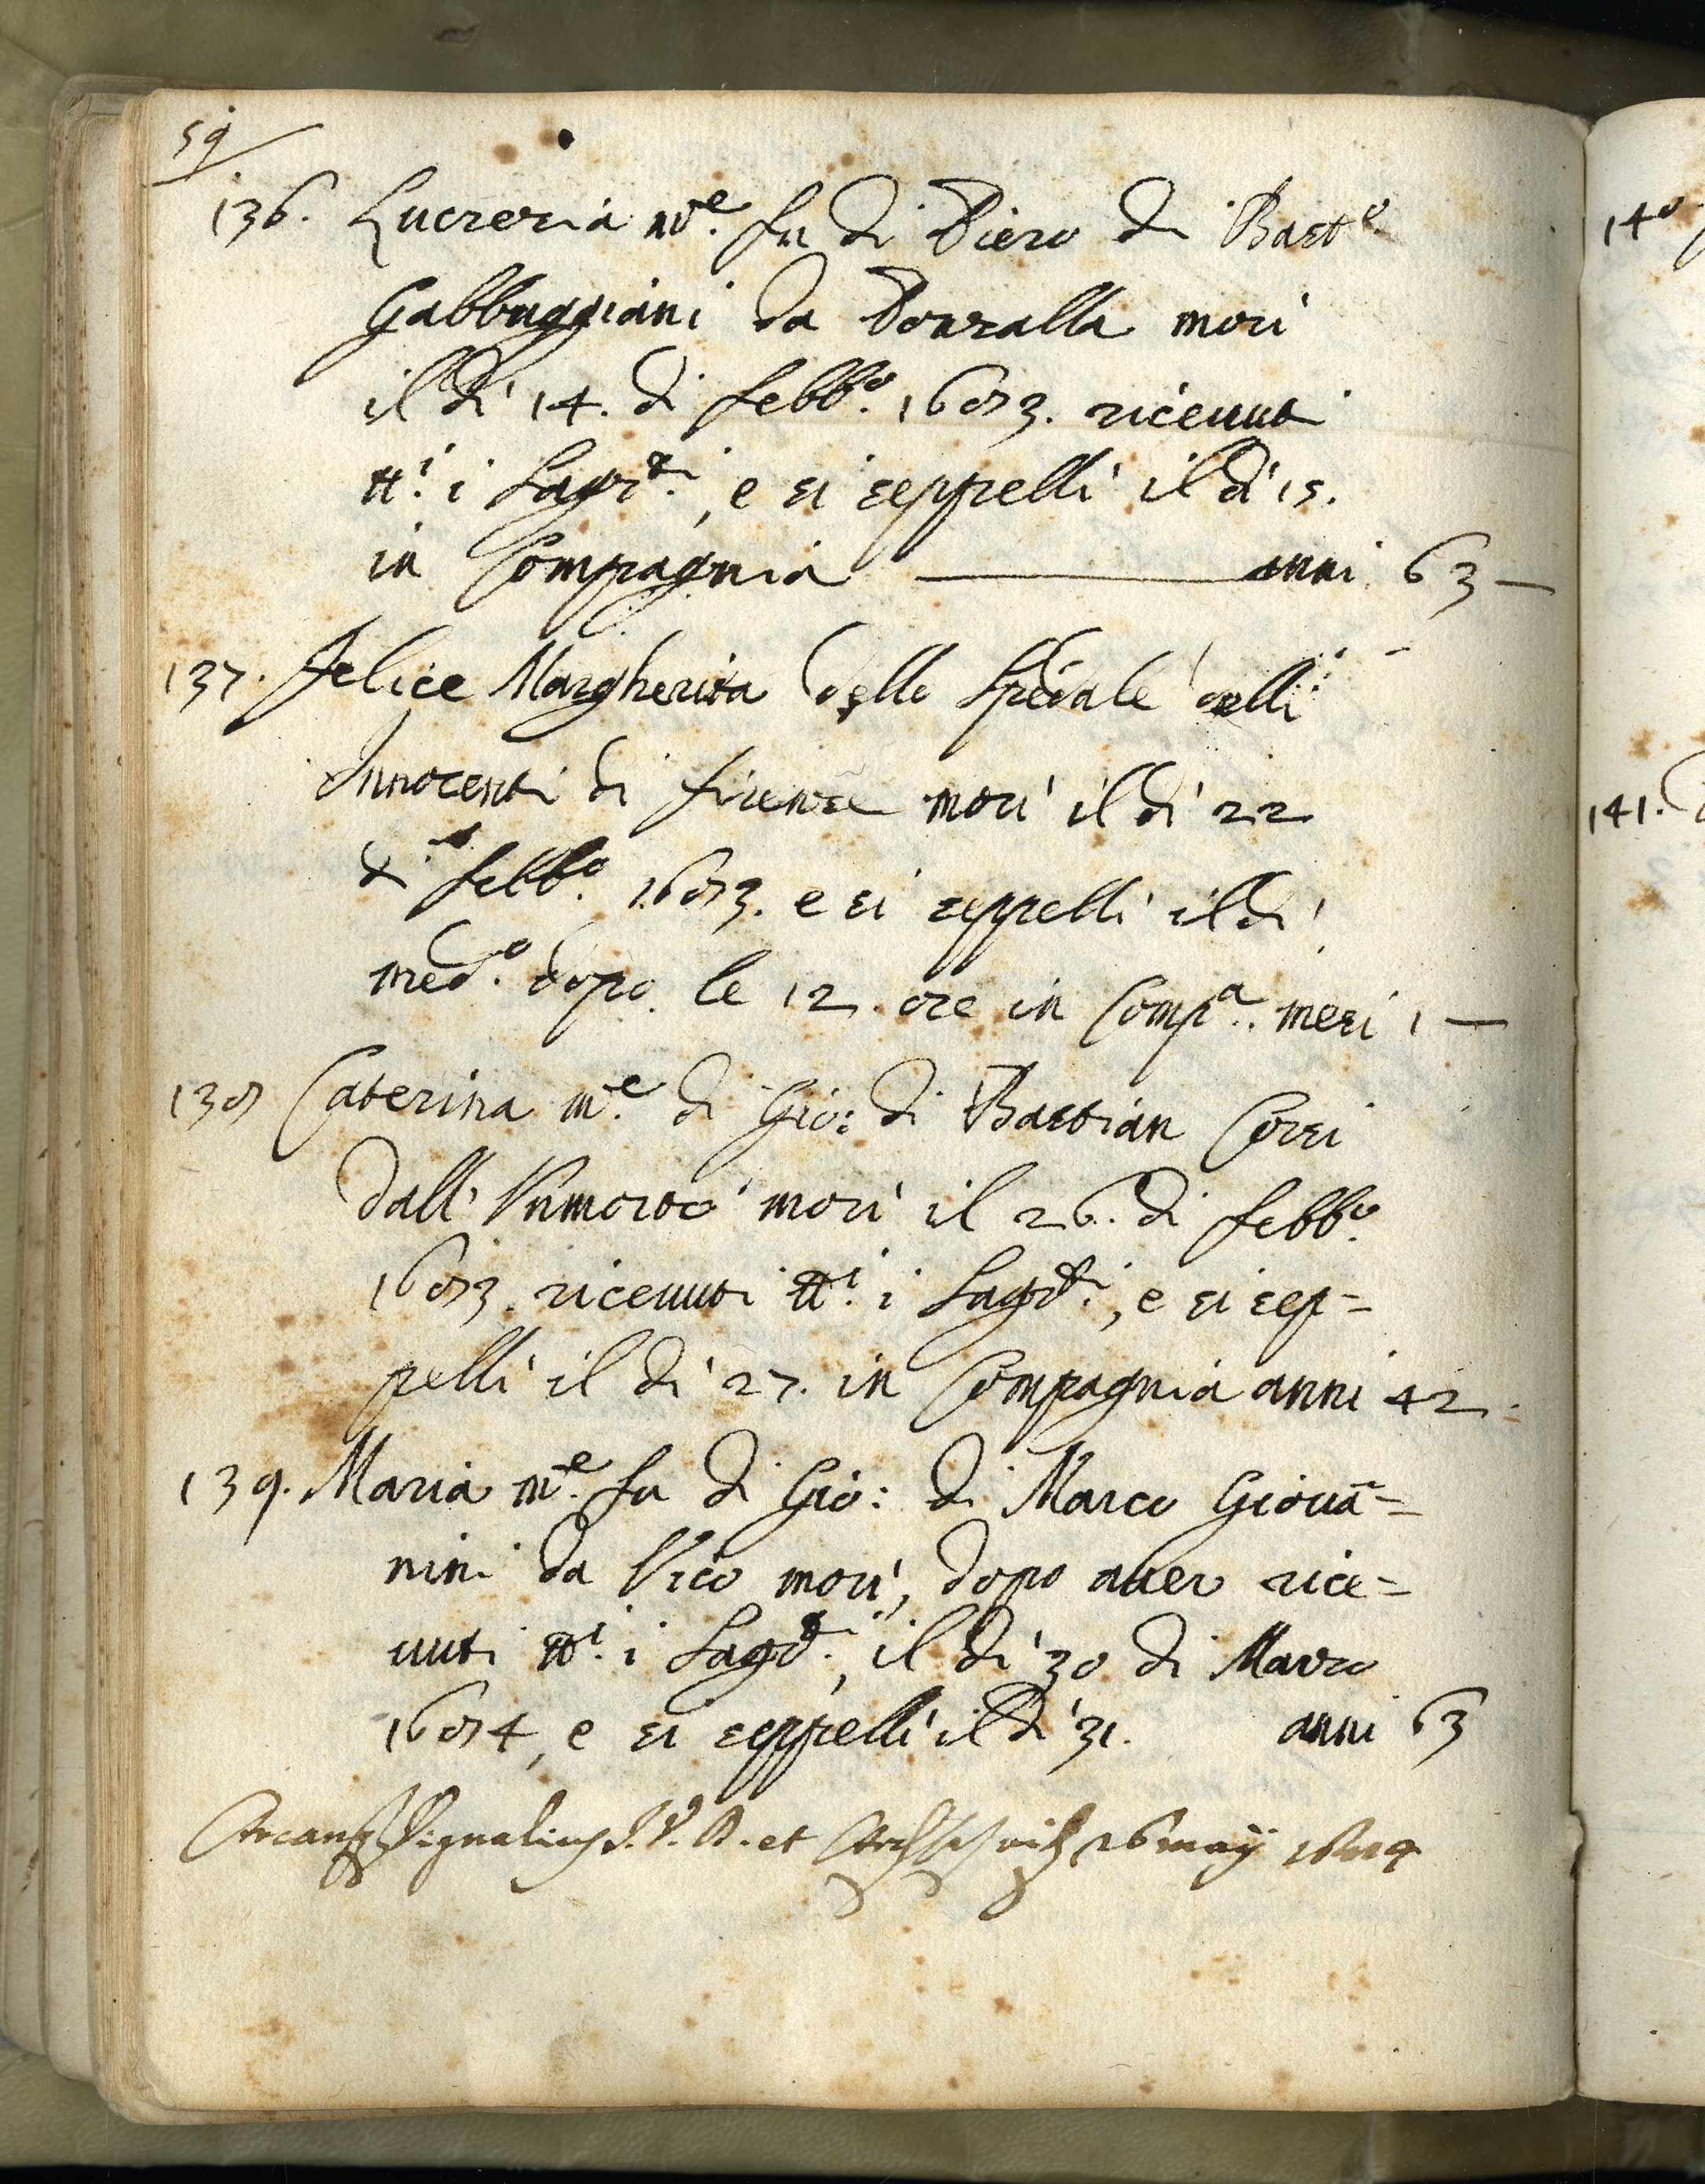 59
136. Lucrezia m.e fu di Piero di Bast.o
Gabbuggiani da Ponzalla morì
il dì 14. di febb.o 1683. riceuuti
tt.i i Sagr.ti, e si seppellì il dì 15.
in Compagnia anni 63
137. Felice Margherita dello Spedale delli
Innocenti di firenze morì il dì 22
di febb.o 1683. e si seppellì il dì
med.o dopo le 12. ore in Comp.a mesi 1
138 Caterina m.e di Gio: di Bastian Corsi
dall' morì il 26. di febb.o
1683. riceuuti tt.i i Sagr.ti, e si sep=
pellì il dì 27. in Compagnia anni 42.
139. Maria m.e fu di Gio: di Marco Giouã=
nini da Vico morì, dopo auer rice=
uuti tt.i i Sag.ti, il dì 30 di Marzo
1684, e si seppellì il dì 31. anni 63
J. V. D. et 26 maij
140
141.